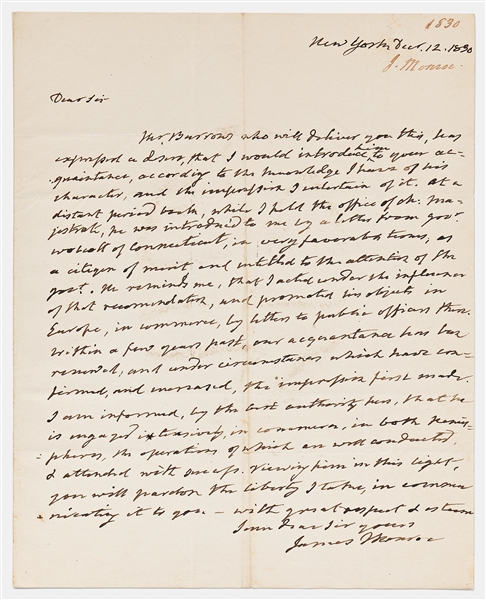 1830
New York Decr. 12. 1830
J. Monroe.
Dear Sir
Mr. Burrows who will deliver you this, has
expressed a desire, that I would introduce him to your ac-
quaintance, according to the knowledge I have of his
character, and the impression I entertain of it. At a
distant period back, while I held the office of ch: ma-
jistrate, he was introduced to me by a letter from govr.
Wolcott of Connecticut, in very favorable terms, as
a citizen of merit and entitled to the attention of the
govt. He reminds me, that I acted under the influence
of that recomendation, and promoted his objects in
Europe, in commerce, by letters to public officers there.
Within a few years past, our acquaintance has been
renewed, and under circumstances which have con-
firmed, and increased, the impression first made.
I am informed, by the best authority here, that he
is engaged extensively, in commerce, in both hemis-
pheres, the operations of which are well conducted,
& attended with success. Viewing him in this light,
you will pardon the liberty I take, in commu
nicating it to you – with great respect & esteem
I am dear Sir yours
James Monroe